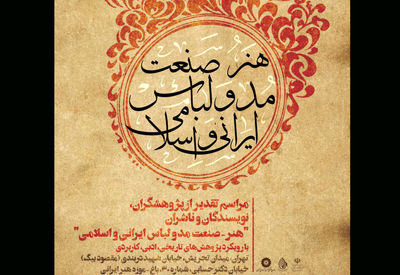 هنر صنعت
مد و لباس
ایرانی و اسلامی
مراسم تقدیر از پژوهشگران،
نویسندگان و ناشران
"هنر-صنعت مد و لباس ایرانی و اسلامی"
با رویکرد پژوهش‌های تاریخی، ادبی، کاربردی
تهران، میدان تجریش، خیابان شهید دربندی (مقصود بیگ)
خیابان دکتر حسابی، شماره ۳۰، باغ-موزه هنر ایرانی